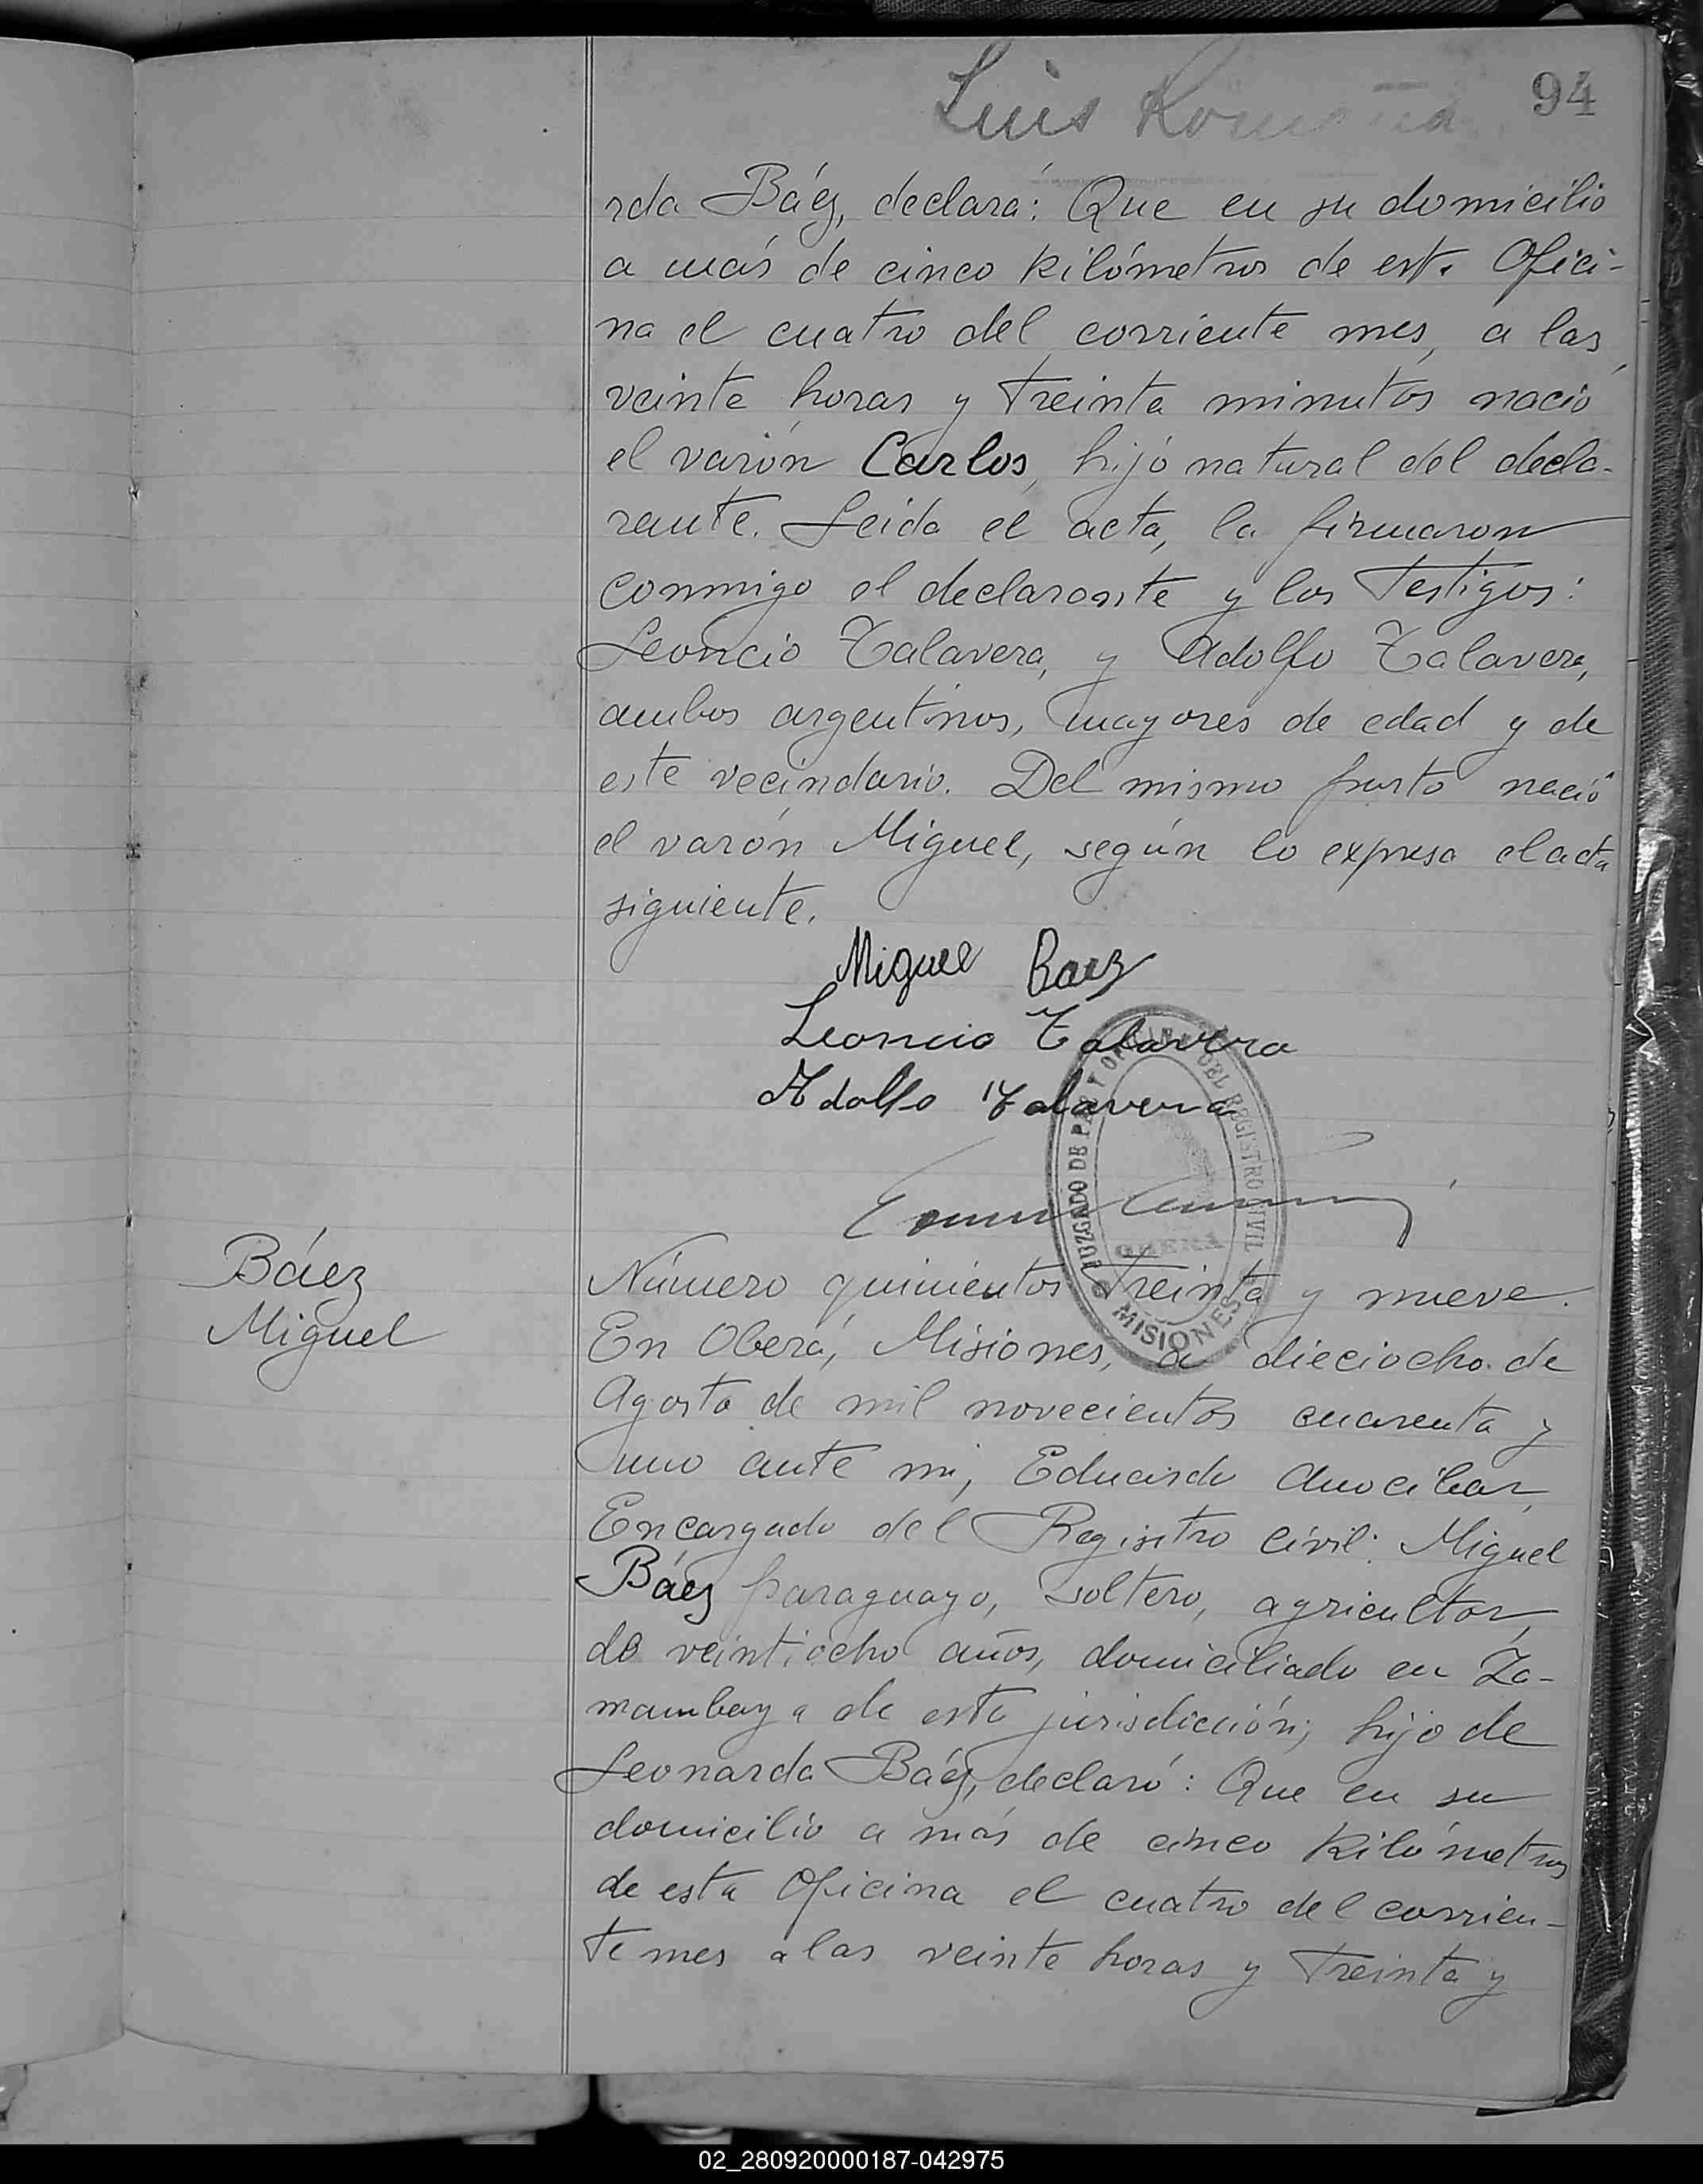 Luis
94
rda Báez, declara: Que en su domicilio
a más de cinco kilómetros de esta Ofici-
na el cuatro del corriente mes, a las
veinte horas y treinta minutos nació
el varón Carlos, hijo natural del decla-
rante. Leída el acta, la firmaron
conmigo el declarante y los testigos:
Leoncio Talavera, y Adolfo Talavera,
ambos argentinos, mayores de edad y de
este vecindario. Del mismo parto nació
el varón Miguel, según lo expresa el acta
siguiente.
Miguel Baez
Leoncio Talavera
Adolfo Talavera
JUZGADO DE PAZ Y OFICINA DEL REGISTRO CIVIL
OBERÁ
MISIONES
Báez
Miguel
Número quinientos treinta y nueve.
En Oberá, Misiones, a dieciocho de
Agosto de mil novecientos cuarenta y
uno ante mi, Eduardo
Encargado del Registro Civil: Miguel
Báez paraguayo, soltero, agricultor,
de veintiocho años, domiciliado en Za-
mambaya de esta jurisdicción, hijo de
Leonarda Báez, declaró: Que en su
domicilio a más de cinco kilómetros
de esta Oficina el cuatro del corrien-
te mes a las veinte horas y treinta y
02_280920000187-042975